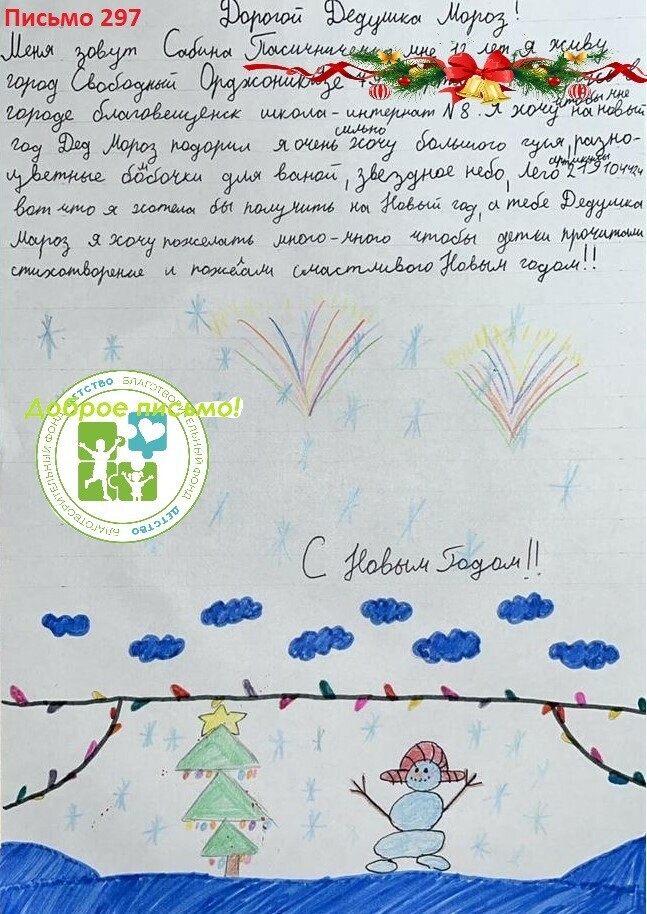 Письмо 297
Дорогой Дедушка Мороз!
Меня зовут Сабина мне 12 лет я живу
город Свободный Орджоникизе в
городе благовещенск школа-интернат N8. Я хочу чтобы мне на новый
год Дед Мороз подорил я очень сильно хочу большого гуся, разно-
цветные бомбочки для ваной, звездное небо, Лего
вот что я хотела бы получить на Новый год, а тебе Дедушка
Мароз я хочу пожелать много-много чтобы детки прочитали
стихотворение и пожелали смастливого Новым годом!!
Доброе письмо!
БЛАГОТВОРИТЕЛЬНЫЙ ФОНД ДЕТСТВО БЛАГОТВОРИТЕЛЬНЫЙ ФОНД ДЕТСТВО
С Новым Годом!!